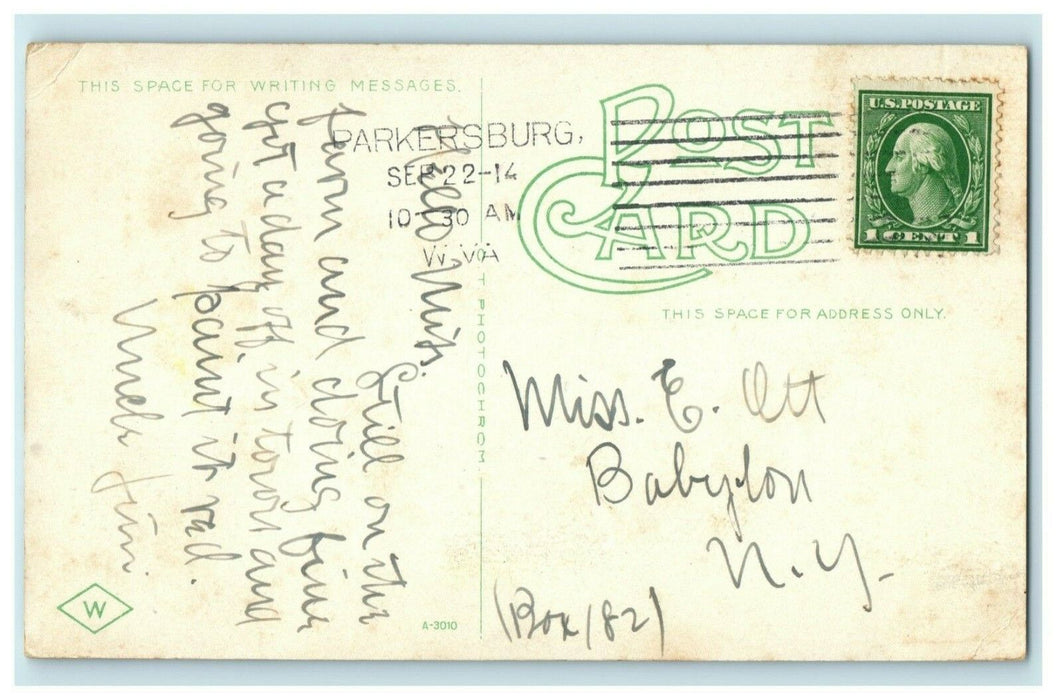 THIS SPACE FOR WRITING MESSAGES.
POST CARD
PARKERSBURG,
SEP 22-14
10-30 AM
W.VA
U.S. POSTAGE
1 CENT 1
THIS SPACE FOR ADDRESS ONLY.
Hello Miss.
Still on the
farm and doing fine
got a day off in town and
going to paint it red.
Uncle Jim.
Miss. E. Ott
Babylon
N.Y.
(Box 182)
PHOTOCHROM
W
A-3010